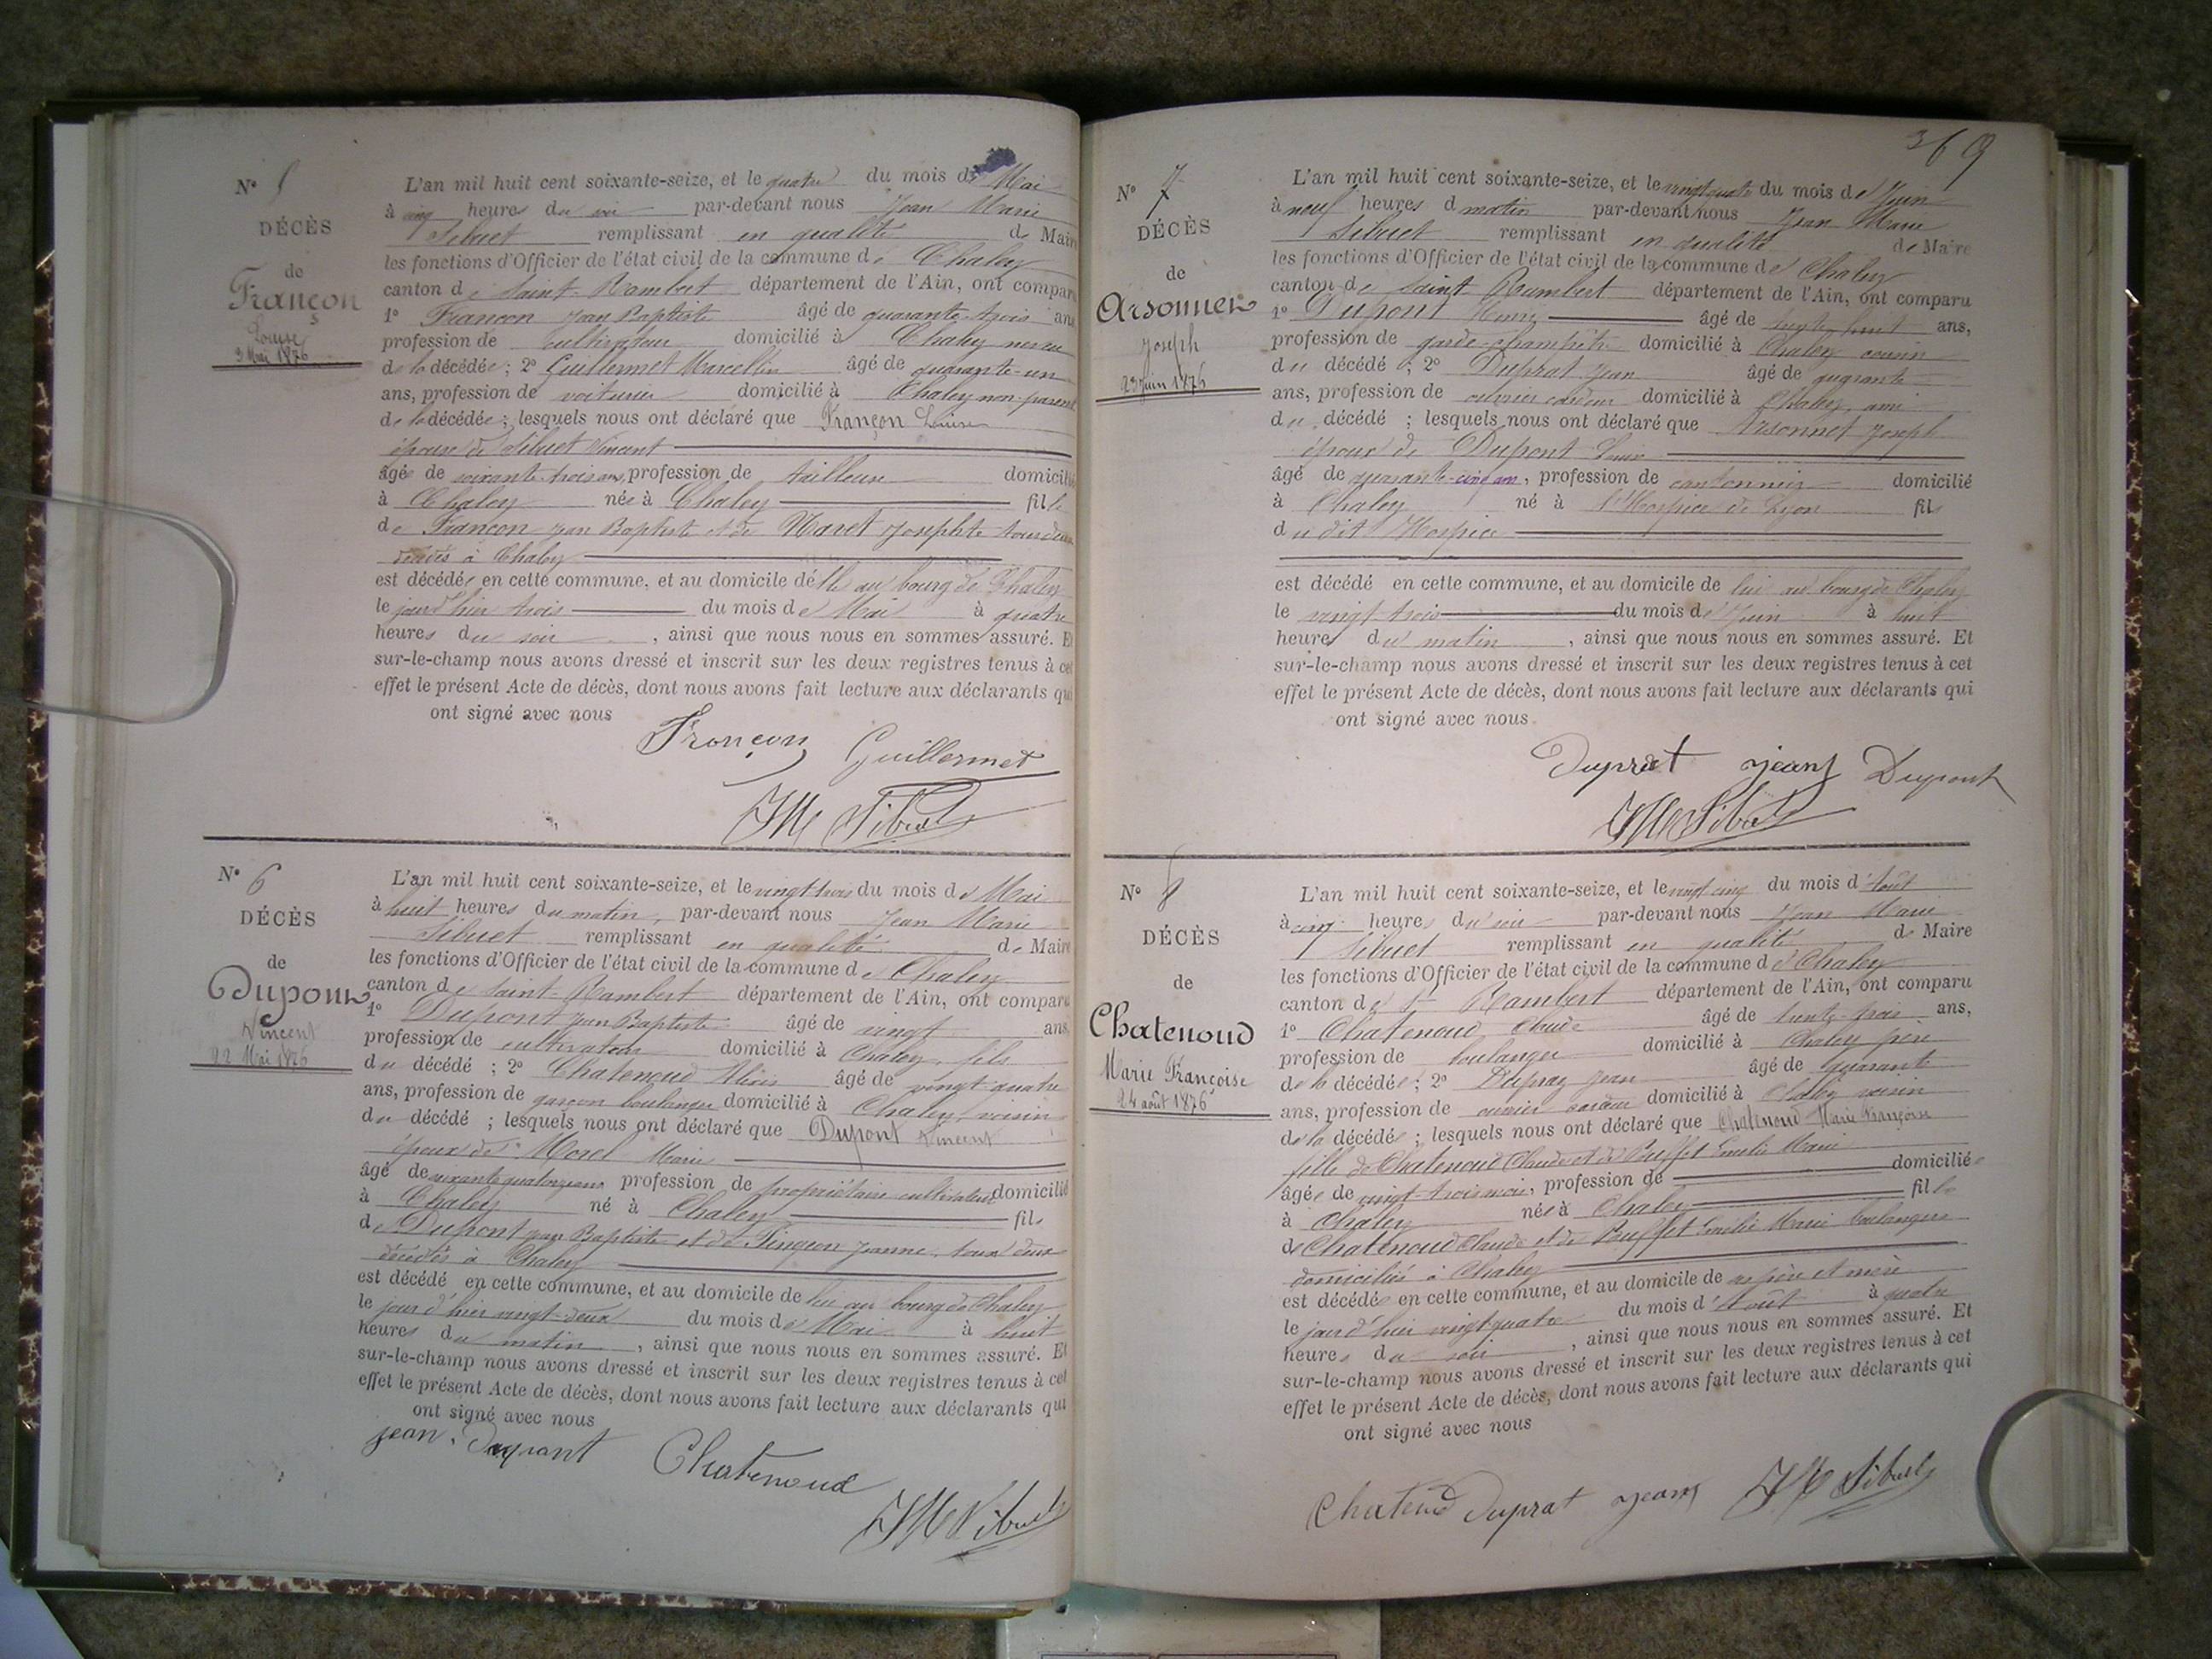 N° 5
DÉCÈS
de
Françon
Louise
3 Mai 1876
L'an mil huit cent soixante-seize, et le quatre du mois de Mai
à cinq heures du soir par-devant nous Jean Marie
Sibuet remplissant en qualité de Maire
les fonctions d'Officier de l'état civil de la commune de Chaley
canton de Saint-Rambert département de l'Ain, ont comparu
1° Françon Jean Baptiste âgé de quarante-trois ans
profession de cultivateur domicilié à Chaley neveu
de la décédée ; 2° Guillermet Marcellin âgé de quarante-un
ans, profession de voiturier domicilié à Chaley non-parent
de la décédée ; lesquels nous ont déclaré que Françon Louise
épouse de Sibuet Vincent
âgée de soixante-trois ans, profession de tailleuse domiciliée
à Chaley née à Chaley fille
de Françon Jean Baptiste et de Maret Josephte tous deux
décédés à Chaley
est décédée en cette commune, et au domicile d'elle au bourg de Chaley
le jour d'hier trois du mois de Mai à quatre
heures du soir, ainsi que nous nous en sommes assuré. Et
sur-le-champ nous avons dressé et inscrit sur les deux registres tenus à cet
effet le présent Acte de décès, dont nous avons fait lecture aux déclarants qui
ont signé avec nous
Françon Guillermet
JM Sibuet
N° 6
DÉCÈS
de
Dupont
Vincent
22 Mai 1876
L'an mil huit cent soixante-seize, et le vingt-trois du mois de Mai
à huit heures du matin, par-devant nous Jean Marie
Sibuet remplissant en qualité de Maire
les fonctions d'Officier de l'état civil de la commune de Chaley
canton de Saint-Rambert département de l'Ain, ont comparu
1° Dupont Jean Baptiste âgé de vingt ans,
profession de cultivateur domicilié à Chaley, fils
du décédé ; 2° Chatenoud Alexis âgé de vingt-quatre
ans, profession de garçon boulanger domicilié à Chaley, voisin
du décédé ; lesquels nous ont déclaré que Dupont Vincent
époux de Morel Marie
âgé de soixante quatorze ans profession de propriétaire cultivateur domicilié
à Chaley né à Chaley fils
de Dupont Jean Baptiste et de Pingeon Jeanne, tous deux
décédés à Chaley
est décédé en cette commune, et au domicile de lui au bourg de Chaley
le jour d'hier vingt-deux du mois de Mai à huit
heures du matin, ainsi que nous nous en sommes assuré. Et
sur-le-champ nous avons dressé et inscrit sur les deux registres tenus à cet
effet le présent Acte de décès, dont nous avons fait lecture aux déclarants qui
ont signé avec nous
jean. Chatenoud
JM Sibuet
369
N° 7
DÉCÈS
de
Arsonnet
Joseph
23 Juin 1876
L'an mil huit cent soixante-seize, et le vingt quatre du mois de Juin
à neuf heures d matin par-devant nous Jean Marie
Sibuet remplissant en qualité de Maire
les fonctions d'Officier de l'état civil de la commune de Chaley
canton de Saint Rambert département de l'Ain, ont comparu
1° Dupont Henry âgé de huit ans,
profession de garde-champêtre domicilié à Chaley cousin
du décédé ; 2° Duprat Jean âgé de quarante
ans, profession de ouvrier cardeur domicilié à Chaley, ami
du décédé ; lesquels nous ont déclaré que Arsonnet Joseph
époux de Dupont Louise
âgé de quarante-cinq ans, profession de cantonnier domicilié
à Chaley né à l'Hospice de Lyon fils
du dit Hospice
est décédé en cette commune, et au domicile de lui au bourg de Chaley
le vingt-trois du mois de Juin à huit
heures du matin, ainsi que nous nous en sommes assuré. Et
sur-le-champ nous avons dressé et inscrit sur les deux registres tenus à cet
effet le présent Acte de décès, dont nous avons fait lecture aux déclarants qui
ont signé avec nous
Duprat jean Dupont
JM Sibuet
N° 8
DÉCÈS
de
Chatenoud
Marie Françoise
24 août 1876
L'an mil huit cent soixante-seize, et le vingt cinq du mois d'Août
à cinq heures du soir par-devant nous Jean Marie
Sibuet remplissant en qualité de Maire
les fonctions d'Officier de l'état civil de la commune de Chaley
canton de St Rambert département de l'Ain, ont comparu
1° Chatenoud Claude âgé de trente-trois ans,
profession de boulanger domicilié à Chaley père
de la décédée ; 2° Dupraz Jean âgé de quarante
ans, profession de ouvrier cardeur domicilié à Chaley voisin
de la décédée ; lesquels nous ont déclaré que Chatenoud Marie Françoise
fille de Chatenoud Claude et de Buffet Emelie Marie
âgée de vingt-trois mois, profession de domiciliée
à Chaley née à Chaley fille
de Chatenoud Claude et de Buffet Emelie Marie boulangers
domiciliés à Chaley
est décédée en cette commune, et au domicile de ses père et mère
le jour d'hier vingt quatre du mois d'Août à quatre
heures du soir, ainsi que nous nous en sommes assuré. Et
sur-le-champ nous avons dressé et inscrit sur les deux registres tenus à cet
effet le présent Acte de décès, dont nous avons fait lecture aux déclarants qui
ont signé avec nous
Duprat jean JM Sibuet